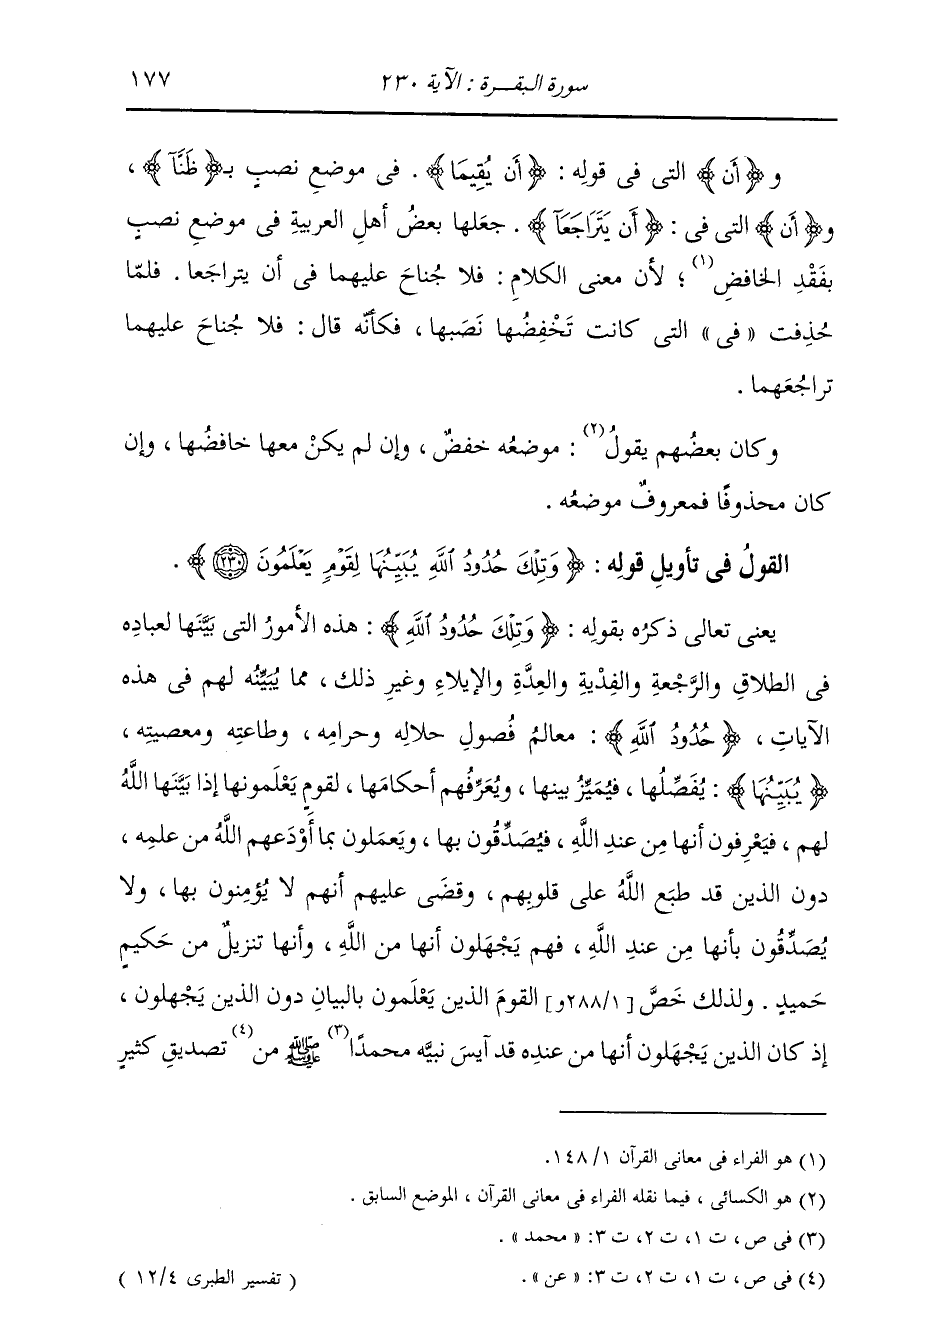 سورة البقرة : الآية ٢٣٠ ١٧٧
و ﴿ أَن ﴾ التى فى قولِه : ﴿ أَن يُقِيمَا ﴾ . فى موضعِ نصبٍ بـ ﴿ ظَنَّآ ﴾ ،
و ﴿ أَن ﴾ التى فى : ﴿ أَن يَتَرَاجَعَآ ﴾ . جعَلها بعضُ أهلِ العربيةِ فى موضعِ نصبٍ
بفَقْدِ الخافضِ(١) ؛ لأن معنى الكلامِ : فلا جُناحَ عليهما فى أن يتراجَعا . فلمّا
حُذِفت « فى » التى كانت تَخْفِضُها نَصَبها ، فكأنّه قال : فلا جُناحَ عليهما
تراجُعَهما .
وكان بعضُهم يقولُ(٢) : موضعُه خفضٌ ، وإن لم يكنْ معها خافضُها ، وإن
كان محذوفًا فمعروفٌ موضعُه .
القولُ فى تأويلِ قولِه : ﴿ وَتِلْكَ حُدُودُ ٱللَّهِ يُبَيِّنُهَا لِقَوْمٍ يَعْلَمُونَ ٢٣٠ ﴾ .
يعنى تعالى ذكرُه بقولِه : ﴿ وَتِلْكَ حُدُودُ ٱللَّهِ ﴾ : هذه الأمورُ التى بَيَّنَها لعبادِه
فى الطلاقِ والرَّجْعةِ والفِدْيةِ والعِدَّةِ والإيلاءِ وغيرِ ذلك ، مما يُبَيِّنُه لهم فى هذه
الآياتِ ، ﴿ حُدُودُ ٱللَّهِ ﴾ : معالمُ فُصولِ حلالِه وحرامِه ، وطاعتِه ومعصيتِه ،
﴿ يُبَيِّنُهَا ﴾ : يُفَصِّلُها ، فيُمَيِّزُ بينها ، ويُعَرِّفُهم أحكامَها ، لقومٍ يَعْلَمونها إذا بَيَّنَها اللَّهُ
لهم ، فيَعْرِفون أنها مِن عندِ اللَّهِ ، فيُصَدِّقُون بها ، ويَعمَلون بما أَوْدَعهم اللَّهُ من علمِه ،
دون الذين قد طبَع اللَّهُ على قلوبِهم ، وقضَى عليهم أنهم لا يُؤمِنون بها ، ولا
يُصَدِّقُون بأنها مِن عندِ اللَّهِ ، فهم يَجْهَلون أنها من اللَّهِ ، وأنها تنزيلٌ من حَكيمٍ
حَميدٍ . ولذلك خَصَّ [ ٢٨٨/١و ] القومَ الذين يَعْلَمون بالبيانِ دون الذين يَجْهلون ،
إذ كان الذين يَجْهَلون أنها من عندِه قد آيسَ نبيَّه محمدًا(٣) ﷺ من(٤) تصديقِ كثيرٍ
(١) هو الفراء فى معانى القرآن ١٤٨/١.
(٢) هو الكسائى ، فيما نقله الفراء فى معانى القرآن ، الموضع السابق .
(٣) فى ص ، ت ١، ت ٢، ت ٣: « محمد » .
(٤) فى ص ، ت ١، ت ٢، ت ٣: « عن » . ( تفسير الطبرى ١٢/٤ )